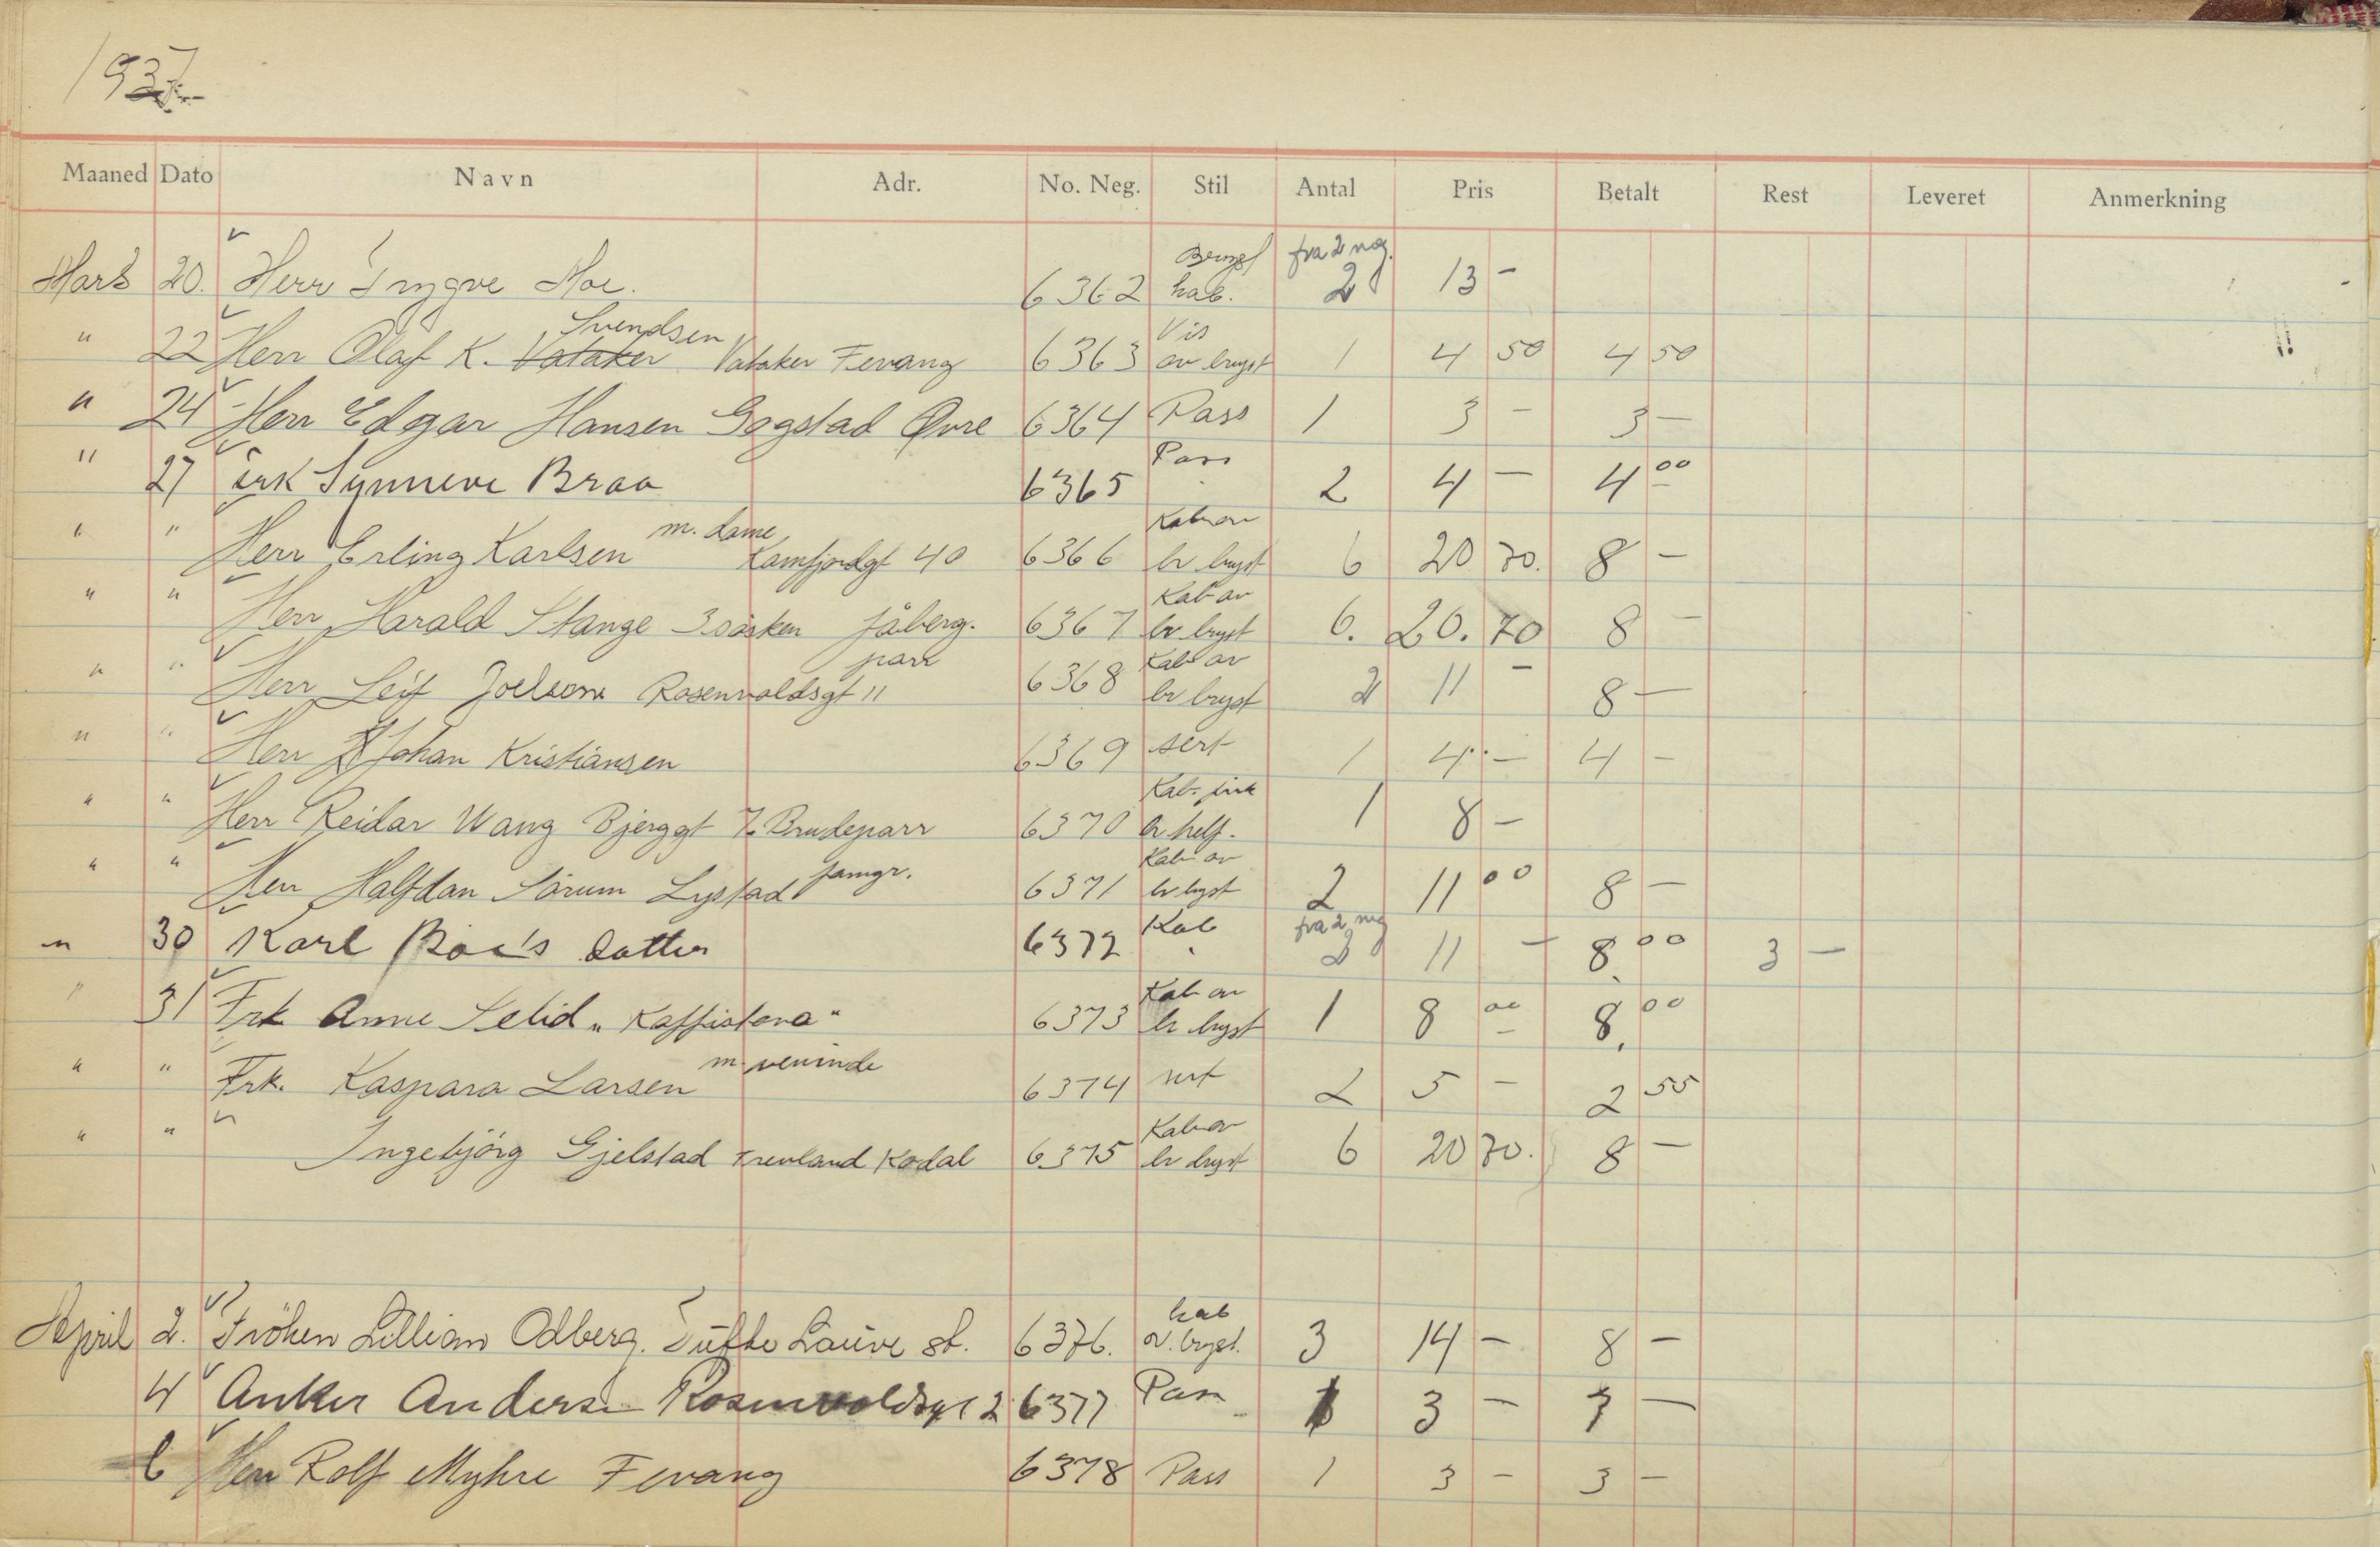 1937
Maaned Dato Navn Adr. No. Neg. Stil Antal Pris Betalt Rest Leveret Anmerkning
Mars 20. Herr Trygve Moe. 6362 kab. fra 2 neg. 2 13 -
" 22 Herr Olaf K. Vataker Svendsen Vataker Fevang 6363 Vis av bryst 1 4 50 4 50
" 24 Herr Edgar Hansen Gogstad Övre 6364 Pass 1 3 - 3 -
" 27 Frk Synneve Braa 6365 Pass 2 4 - 4 00
" " Herr Erling Karlsen m. dame Kamfjordgt 40 6366 Kab av br bryst 6 20 70. 8 -
" " Herr Harald Stange 3 sösken Jåberg. 6367 Kab av br bryst 6. 20. 70 8 -
" " Herr Leif Joelson parr Rosenvoldsgt 11 6368 Kab av br bryst 2 11 - 8 -
" " Herr Johan Kristiansen 6369 sert 1 4 - 4 -
" " Herr Reidar Wang Bjerggt 7. Brudeparr 6370 Kab. br helf. 1 8 -
" " Herr Halfdan Sörum Lystad famgr. 6371 Kab av br bryst 2 11 00 8 -
" 30 Karl datter 6372 Kab fra 2 neg 2 11 - 8. 00 3 -
" 31 Frk Anne Selid "Kaffistova" 6373 Kab av br bryst 1 8 00 8. 00
" " Frk. Kaspara Larsen m. veninde 6374 sert 2 5 - 2 55
" " Ingebjörg Gjelstad Trevland Kodal 6375 Kab av br bryst 6 20 70. 8 -
April 2. Fröken Lillian Odberg. Tufte Lauve st. 6376. kab av. bryst. 3 14 - 8 -
4 Anker Andersen Rosenvoldsgt 2 6377 Pass 1 3 - 3 -
6 Herr Rolf Myhre Fevang 6378 Pass 1 3 - 3 -